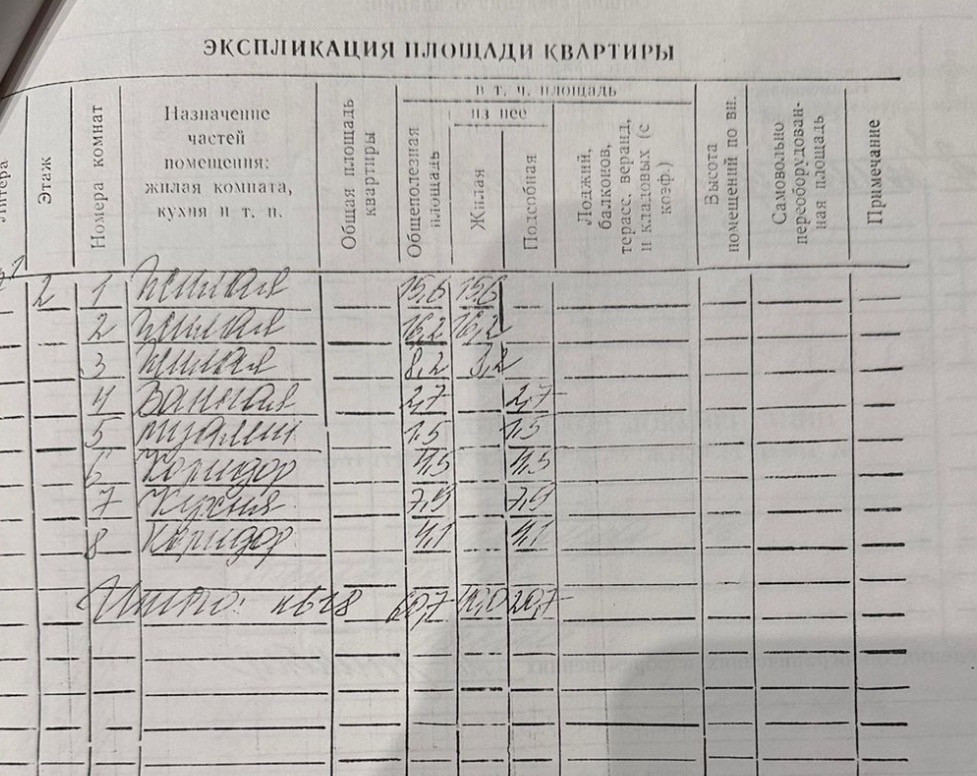 ЭКСПЛИКАЦИЯ ПЛОЩАДИ КВАРТИРЫ
Литера
Этаж
Номера комнат
Назначение
частей
помещения:
жилая комната,
кухня и т. п.
Общая площадь
квартиры
в т. ч. площадь
Общеполезная
площадь
из нее
Жилая
Подсобная
Лоджий,
балконов,
терасс, веранд,
и кладовых (с
коэф.)
Высота
помещений по вн.
Самовольно
переоборудован-
ная площадь
Примечание
2 1 жилая 15,6 15,6
2 жилая 16,2 16,2
3 жилая 8,2 8,2
4 Ванная 2,7 2,7
5 туалет 1,5 1,5
6 Коридор 4,5 4,5
7 Кухня 7,9 7,9
8 Коридор 4,1 4,1
Итого: 60,7 40,0 20,7